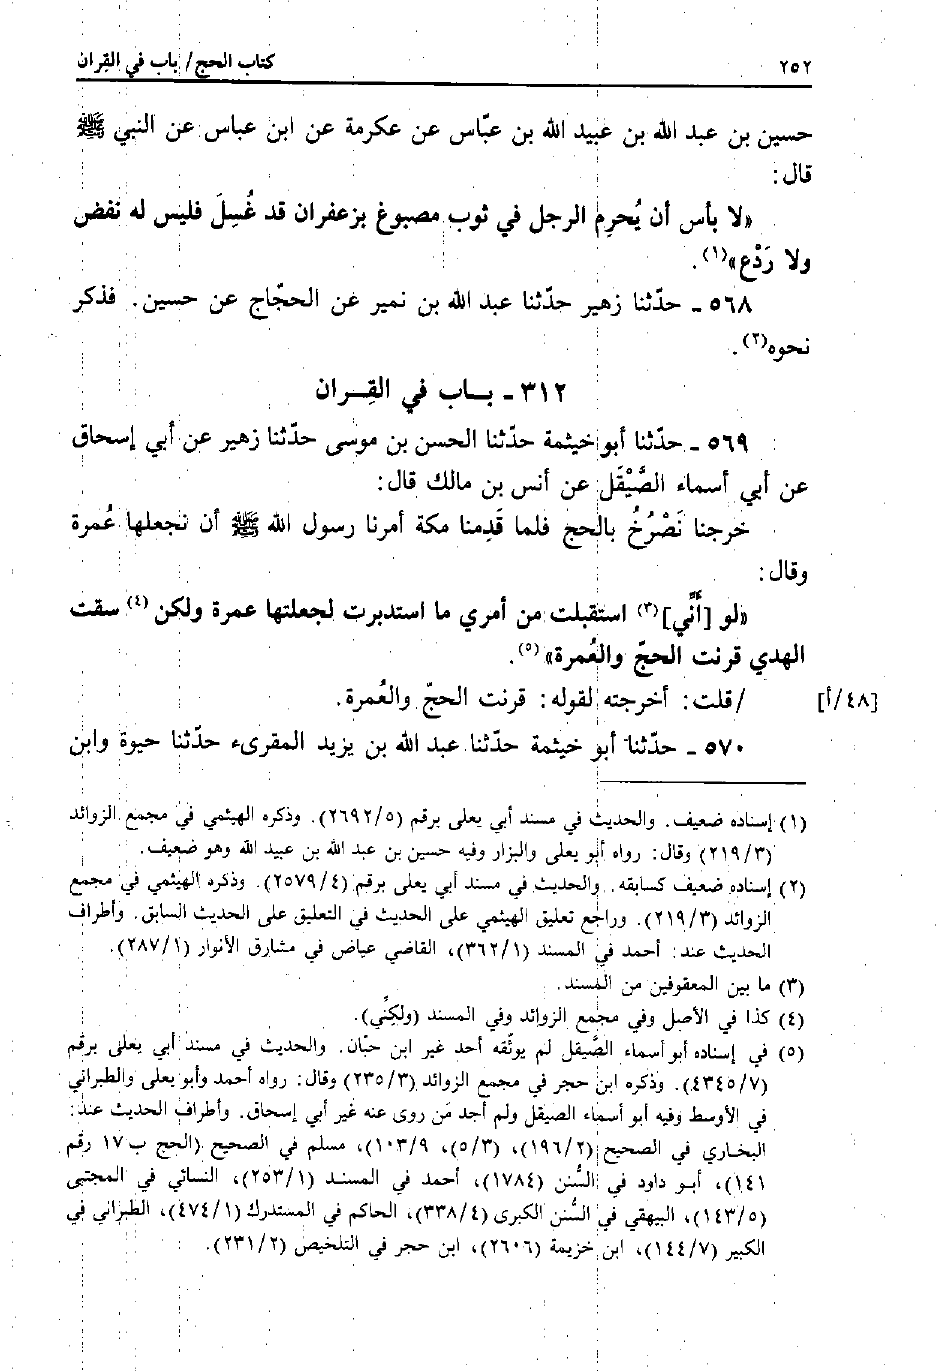 ٢٥٢ كتاب الحج/ باب في القِران
حسين بن عبد الله بن عبيد الله بن عبّاس عن عكرمة عن ابن عباس عن النبي ﷺ
قال:
«لا بأس أن يُحرِم الرجل في ثوب مصبوغ بزعفران قد غُسِلَ فليس له نفض
ولا رَدْع»(١).
٥٦٨ ـ حدّثنا زهير حدّثنا عبد الله بن نمير عن الحجّاج عن حسين. فذكر
نحوه(٢).
٣١٢ ـ بــاب في القِــران
٥٦٩ ـ حدّثنا أبو خيثمة حدّثنا الحسن بن موسى حدّثنا زهير عن أبي إسحاق
عن أبي أسماء الصَّيْقَل عن أنس بن مالك قال:
خرجنا نَصْرُخُ بالحج فلما قَدِمنا مكة أمرنا رسول الله ﷺ أن نجعلها عُمرة
وقال:
«لو [أنِّي](٣) استقبلت من أمري ما استدبرت لجعلتها عمرة ولكن(٤) سقت
الهدي قرنت الحجّ والعُمرة»(٥).
/قلت: أخرجته لقوله: قرنت الحجّ والعُمرة. [٤٨/أ]
٥٧٠ ـ حدّثنا أبو خيثمة حدّثنا عبد الله بن يزيد المقرىء حدّثنا حيوة وابن
(١) إسناده ضعيف. والحديث في مسند أبي يعلى برقم (٢٦٩٢/٥). وذكره الهيثمي في مجمع الزوائد
(٢١٩/٣) وقال: رواه أبو يعلى والبزار وفيه حسين بن عبد الله بن عبيد الله وهو ضعيف.
(٢) إسناده ضعيف كسابقه. والحديث في مسند أبي يعلى برقم (٢٥٧٩/٤). وذكره الهيثمي في مجمع
الزوائد (٢١٩/٣). وراجع تعليق الهيثمي على الحديث في التعليق على الحديث السابق. وأطراف
الحديث عند: أحمد في المسند (٣٦٢/١)، القاضي عياض في مشارق الأنوار (٢٨٧/١).
(٣) ما بين المعقوفين من المسند.
(٤) كذا في الأصل وفي مجمع الزوائد وفي المسند (ولكِنِّي).
(٥) في إسناده أبو أسماء الصَّيقل لم يوثّقه أحد غير ابن حبّان. والحديث في مسند أبي يعلى برقم
(٤٣٤٥/٧). وذكره ابن حجر في مجمع الزوائد (٢٣٥/٣) وقال: رواه أحمد وأبو يعلى والطبراني
في الأوسط وفيه أبو أسماء الصيقل ولم أجد مَن روى عنه غير أبي إسحاق. وأطراف الحديث عند:
البخاري في الصحيح (١٩٦/٢)، (٥/٣)، ١٠٣/٩)، مسلم في الصحيح (الحج ب ١٧ رقم
١٤١)، أبو داود في السُّنن (١٧٨٤)، أحمد في المسند (٢٥٣/١)، النسائي في المجتبى
(١٤٣/٥)، البيهقي في السُّنن الكبرى (٣٣٨/٤)، الحاكم في المستدرك (٤٧٤/١)، الطبراني في
الكبير (١٤٤/٧)، ابن خزيمة (٢٦٠٦)، ابن حجر في التلخيص (٢٣١/٢).